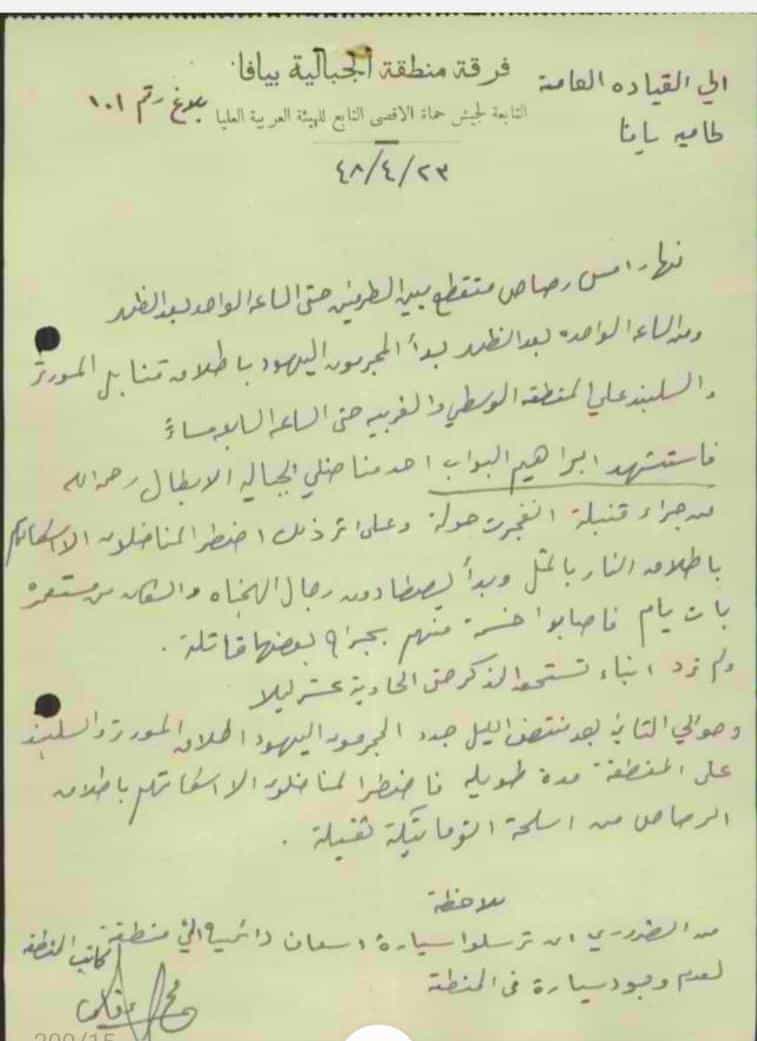 فرقة منطقة الجبالية بيافا
الي القياده العامه
بلاغ رقم ١٠١
التابعة لجيش حماة الاقصى التابع للهيئة العربية العليا
لحاميه يافا
٤٨/٤/٢٣
نهار امس رصاص متقطع بين الطرفين حتى الساعه الواحده بعد الظهر
ومن الساعه الواحده بعد الظهر بدأ المجرمون اليهود باطلاق قنابل المورتر
والسلبند على المنطقه الوسطي والغربيه حتى الساعه السابعه مساءً
فاستشهد ابراهيم البواب احد مناضلي الجباليه الابطال رحمه الله
من جراء قنبلة انفجرت حوله وعلى اثر ذلك اضطر المناضلون الا اسكاتهم
باطلاق النار بالمثل وبدأ يصطادون رجال الهجناه والسكان من مستعمرة
بات يام فاصابوا خمسة منهم بجراح بعضها قاتلة .
ولم ترد انباء تستحق الذكر حتى الحادية عشر ليلا
وحوالي الثانيه بعد منتصف الليل جدد المجرمون اليهود اطلاق المورتر والسلبند
على المنطقة مدة طويله فاضطر المناضلون الا اسكاتهم باطلاق
الرصاص من اسلحة اتوماتيكية ثقيلة .
ملاحظة
من الضروري ان ترسلوا سيارة اسعاف دائميه الي منطقة
لعدم وجود سيارة في المنطقة
كاتب المنطقه
200/15